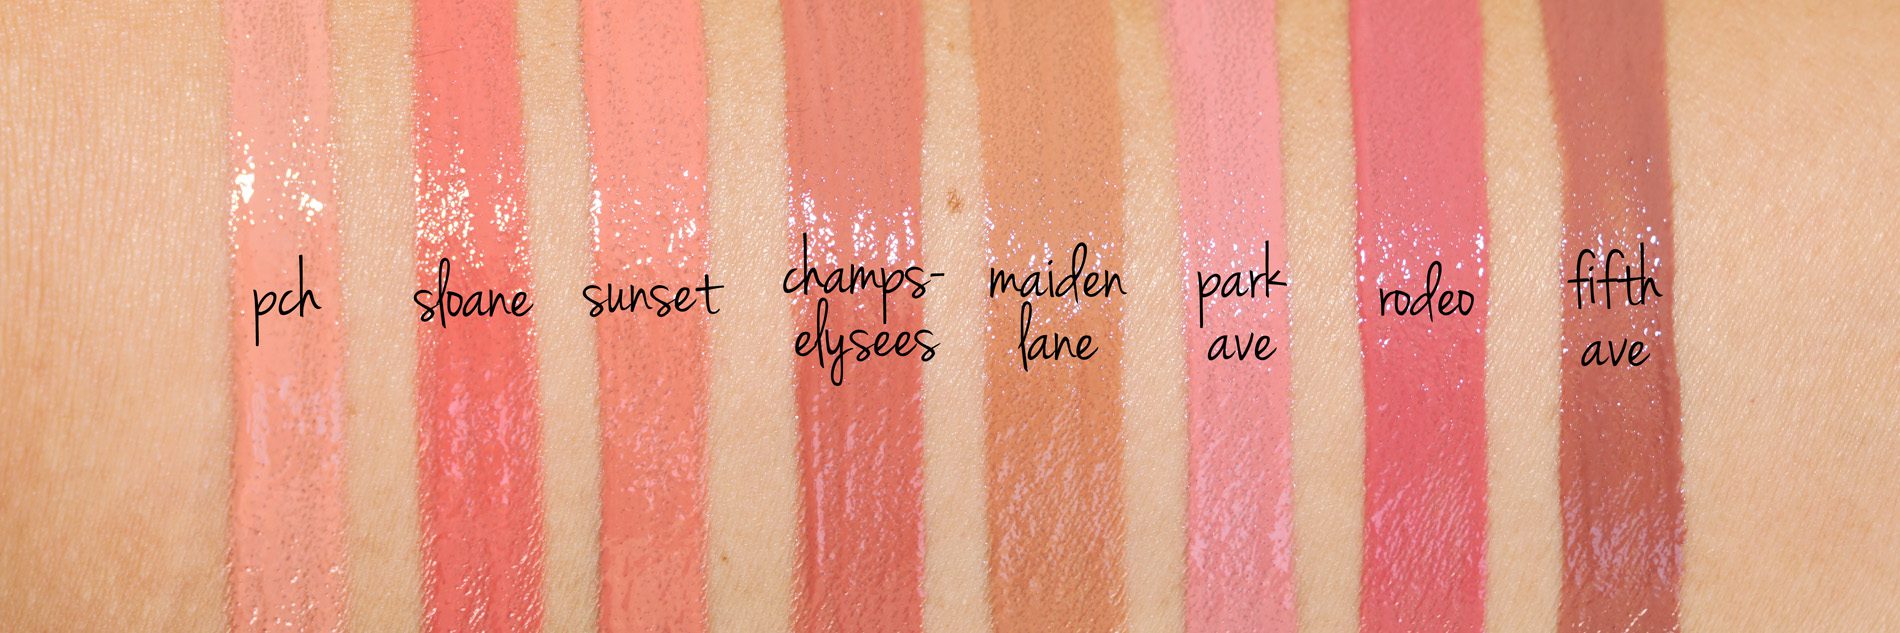 pch
sloane
sunset
champs-
elysees
maiden
lane
park
ave
rodeo
fifth
ave